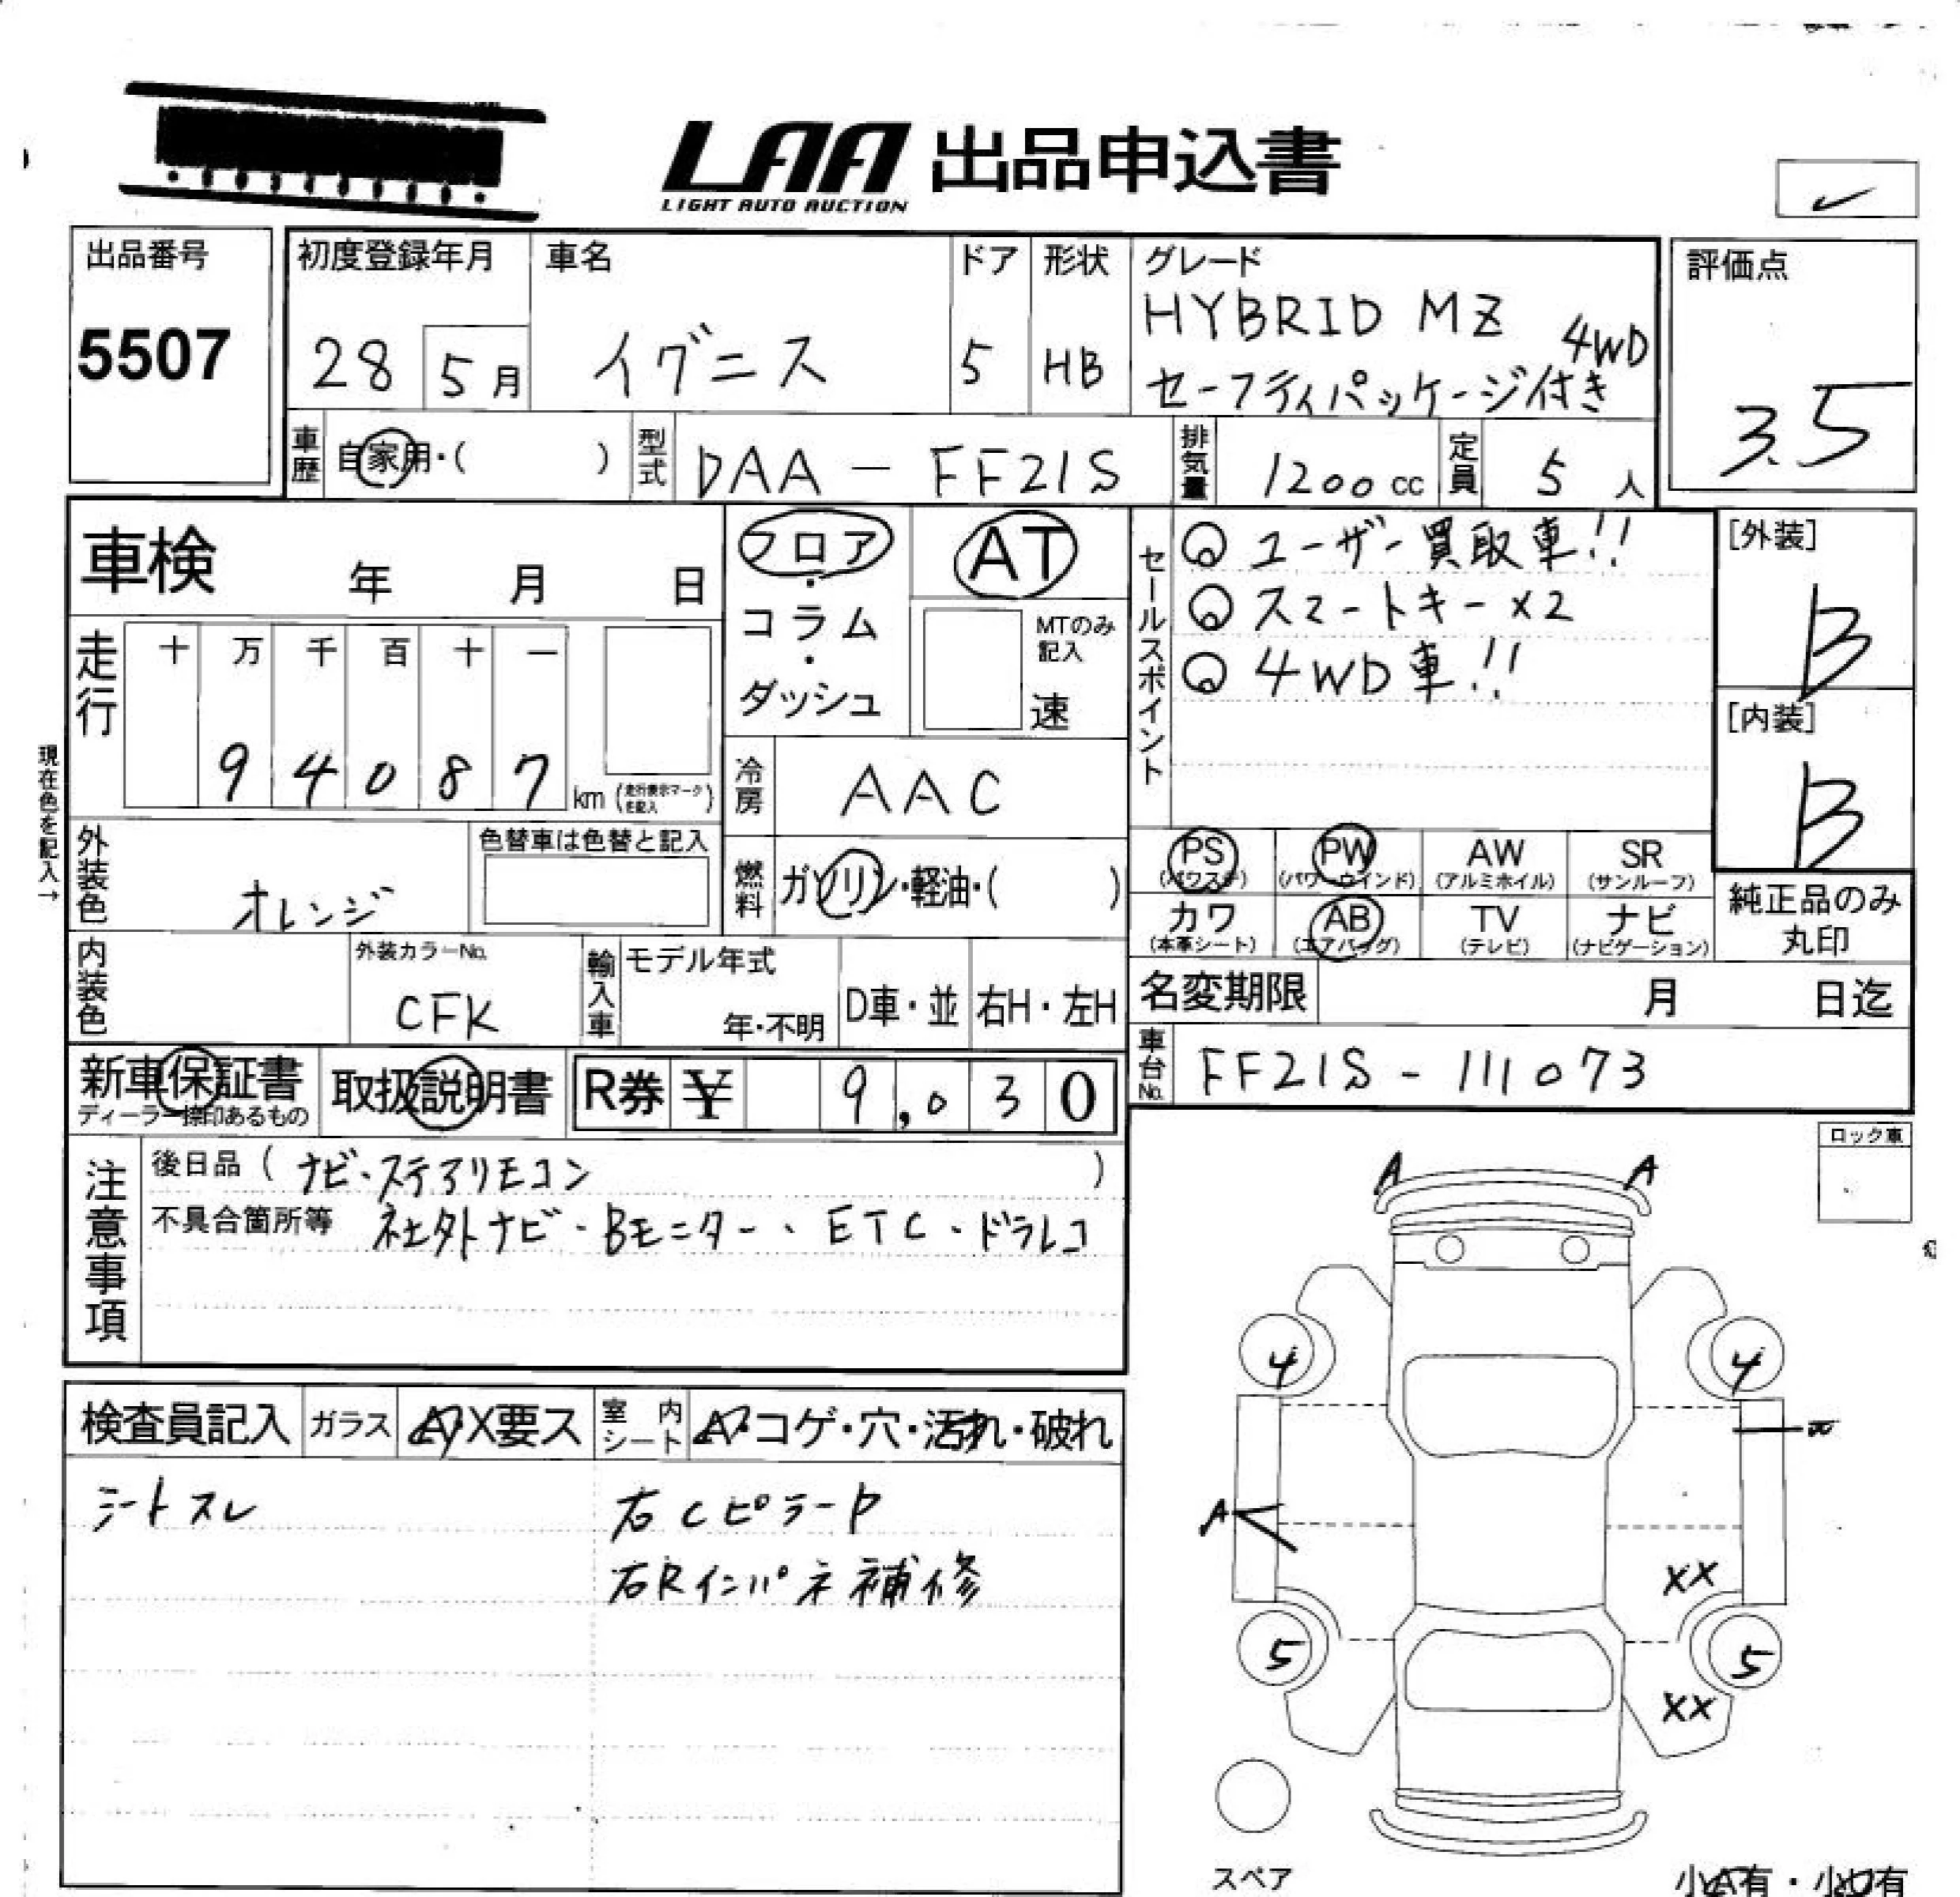 LAA 出品申込書
LIGHT AUTO AUCTION
出品番号
5507
初度登録年月
28 5月
車名
イグニス
ドア
5
形状
HB
グレード
HYBRID MZ 4WD
セーフティパッケージ付き
評価点
3.5
車歴
自家用・( )
型式
DAA-FF21S
排気量
1200cc
定員
5人
車検 年 月 日
走行
十 万 千 百 十 一
9 4 0 8 7 km (走行表示マークを記入)
現在色を記入→
フロア・コラム・ダッシュ
AT
MTのみ記入
速
冷房
AAC
セールスポイント
◎ユーザー買取車!!
◎スマートキー×2
◎4WD車!!
[外装]
B
[内装]
B
外装色
オレンジ
色替車は色替と記入
燃料
ガソリン・軽油・( )
PS (パワステ)
PW (パワーウインド)
AW (アルミホイル)
SR (サンルーフ)
カワ (本革シート)
AB (エアバッグ)
TV (テレビ)
ナビ (ナビゲーション)
純正品のみ丸印
内装色
外装カラーNo.
CFK
輸入車
モデル年式
年・不明
D車・並
右H・左H
名変期限 月 日迄
車台No.
FF21S-111073
新車保証書
ディーラー捺印あるもの
取扱説明書
R券 ¥ 9,030
注意事項
後日品(ナビ・ステアリモコン)
不具合箇所等 社外ナビ・Bモニター、ETC・ドラレコ
ロック車
検査員記入
ガラス
A・X要ス
室内シート
A・コゲ・穴・汚れ・破れ
シートスレ
右CピラーP
右Rインパネ補修
A A
4 4
A
XX
5 5
XX
スペア
小A有・小U有